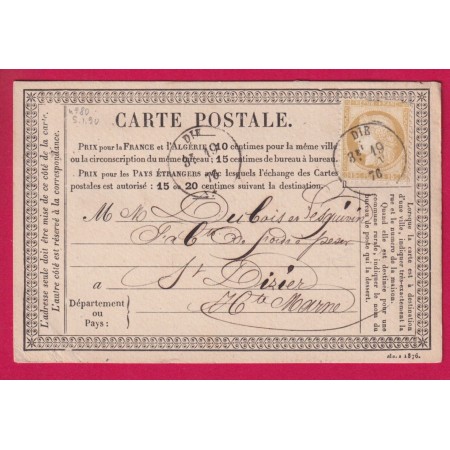 CARTE POSTALE.
PRIX pour la FRANCE et l'ALGÉRIE 10 centimes pour la même ville
ou la circonscription du même bureau; 15 centimes de bureau à bureau.
PRIX pour les PAYS ÉTRANGERS avec lesquels l'échange des Cartes
postales est autorisé: 15 ou 20 centimes suivant la destination.
DIE
19
76
DIE
19
76
M. M. Dubois et
St Dizier
Hte Marne
à
Département
ou
Pays:
L'adresse seule doit être mise de ce côté de la carte.
L'autre côté est réservé à la correspondance.
Lorsque la carte est à destination
d'une ville, indiquer très-exactement la
rue et le numéro de la maison.
Quand elle est destinée pour une
commune rurale, indiquer le nom du
bureau de poste qui la dessert.
1876.